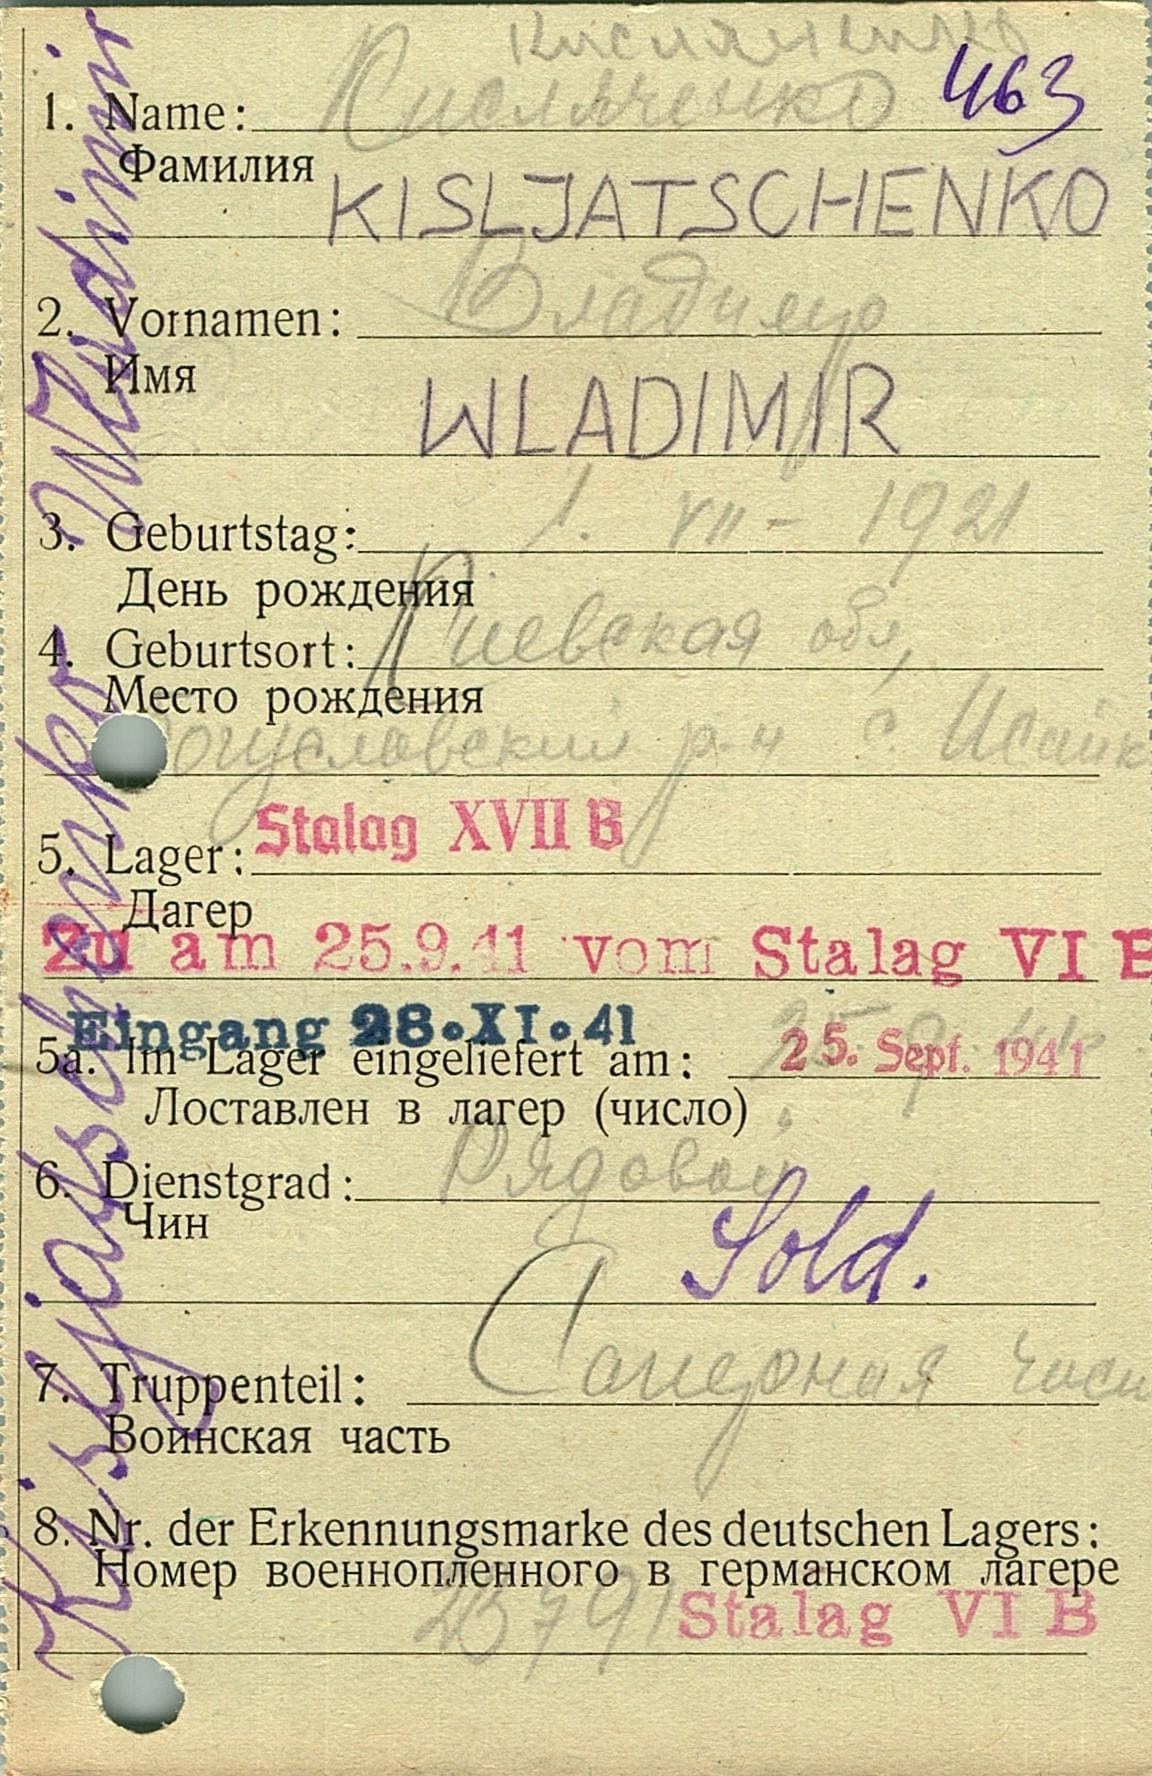 Кисляченко
463
1. Name: Кисляченко
Фамилия
KISLJATSCHENKO
2. Vornamen: Владимир
Имя
WLADIMIR
3. Geburtstag: 1. VII - 1921
День рождения
4. Geburtsort: Киевская обл,
Место рождения
Богуславский р-н с Исайк
5. Lager: Stalag XVII B
Дагер
Zu am 25.9.41 vom Stalag VI B
Eingang 28.XI.41
5a. Im Lager eingeliefert am: 25. Sept. 1941
Лоставлен в лагер (число)
6. Dienstgrad: Рядовой
Чин
Sold.
7. Truppenteil: Саперная часть
Воинская часть
8. Nr. der Erkennungsmarke des deutschen Lagers:
Номер военнопленного в германском лагере
23791 Stalag VI B
Kisljatschenko Wladimir